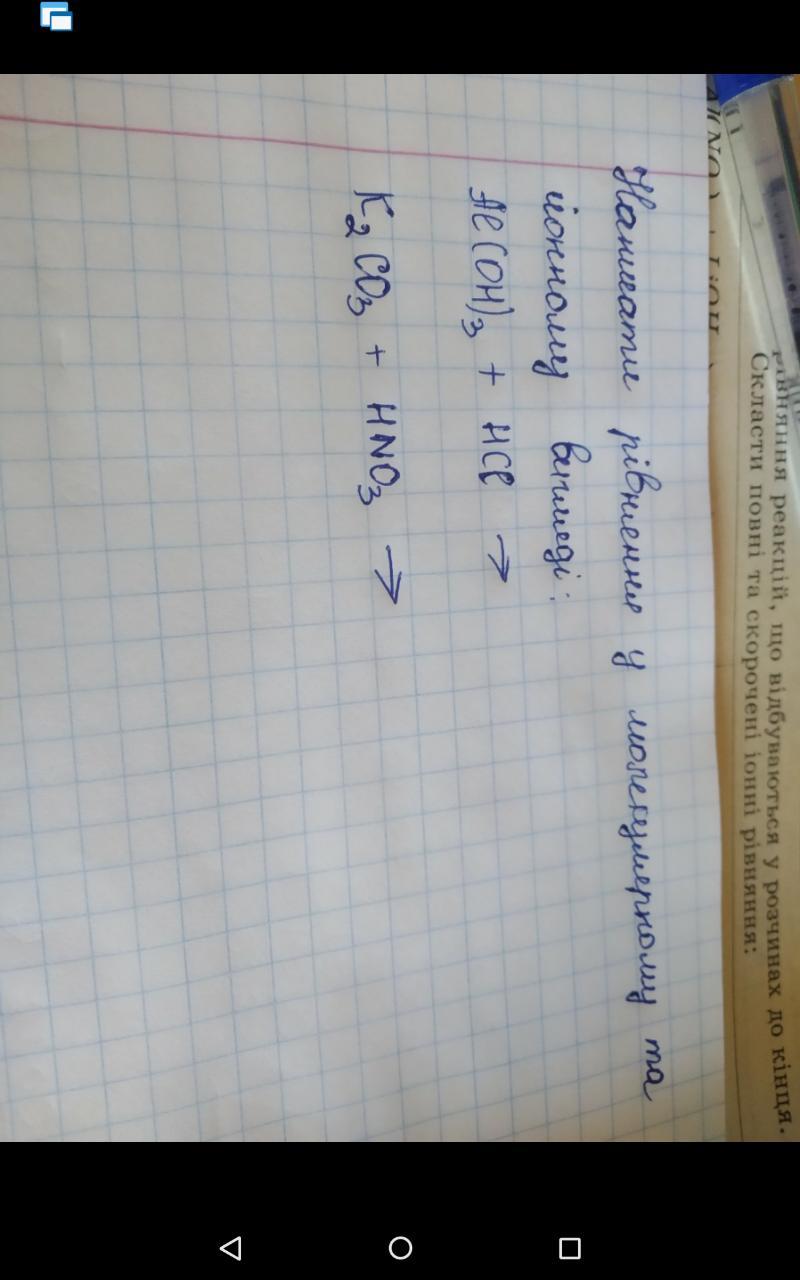 рівняння реакцій, що відбуваються у розчинах до кінця.
Скласти повні та скорочені іонні рівняння:
Написати рівняння у молекулярному та
іонному вигляді:
Al(OH)3 + HCl →
K2CO3 + HNO3 →